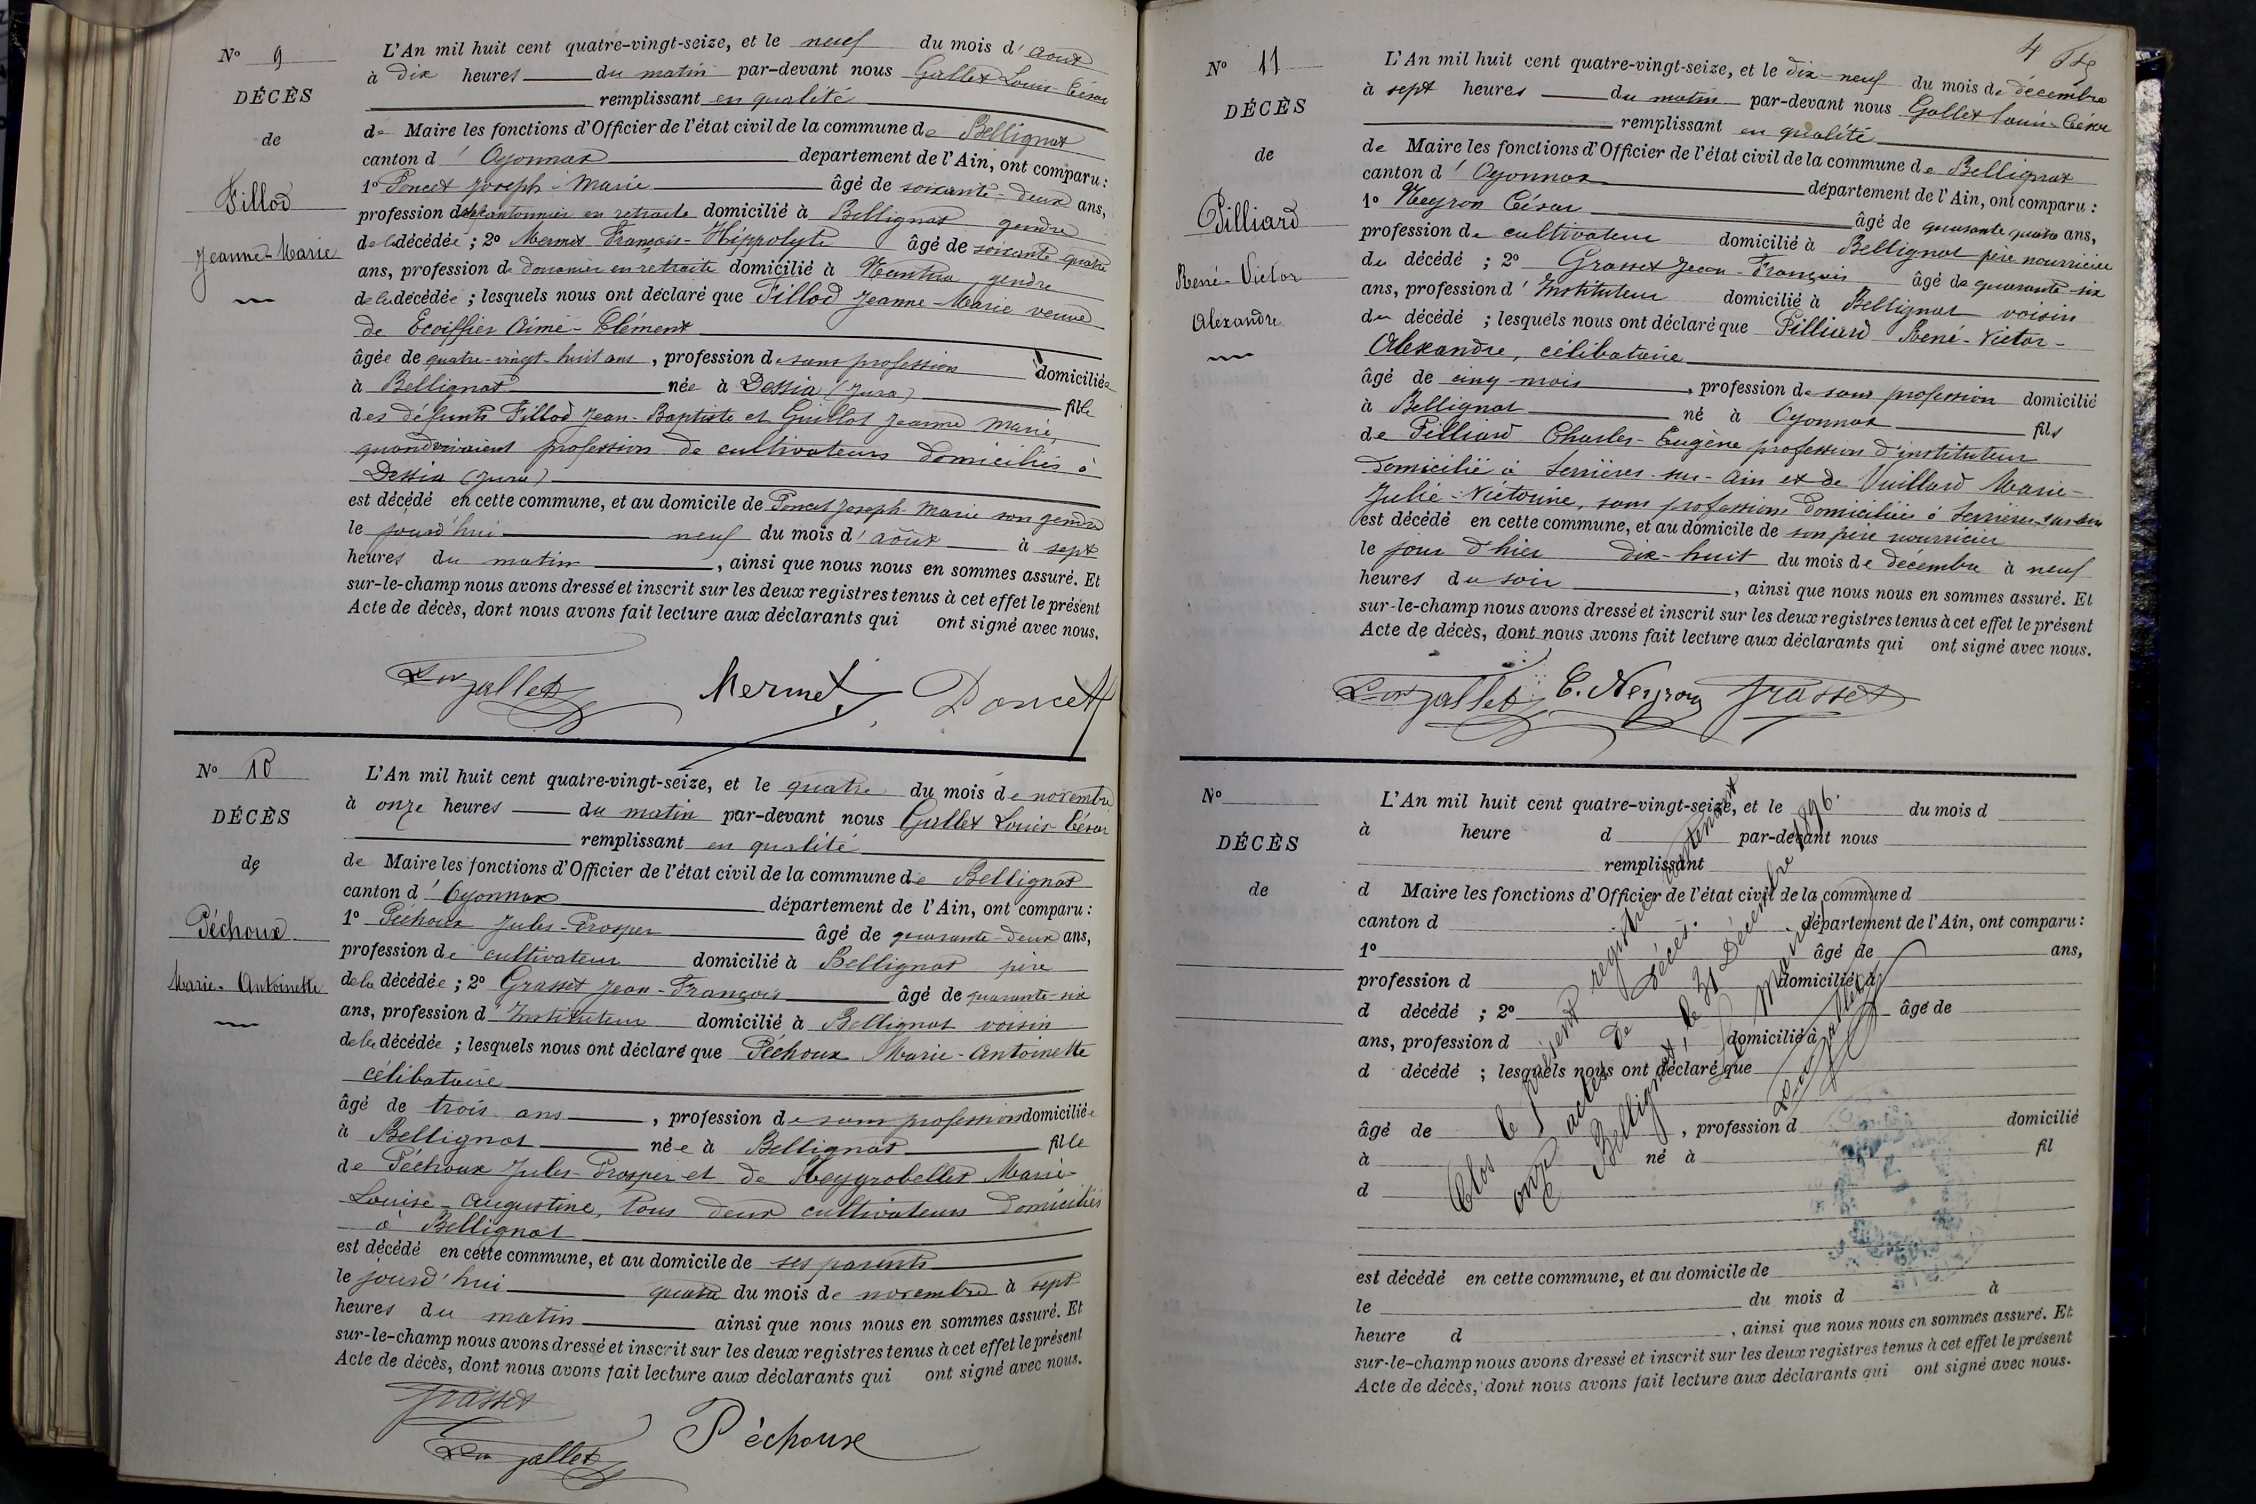 N° 9
DÉCÈS
de
Fillod
Jeanne-Marie
L'An mil huit cent quatre-vingt-seize, et le neuf du mois d'août
à dix heures du matin par-devant nous Gallet Louis-César
remplissant en qualité
de Maire les fonctions d'Officier de l'état civil de la commune de Bellignat
canton d'Oyonnax departement de l'Ain, ont comparu :
1° Poncet Joseph-Marie âgé de soixante-deux ans,
profession de cantonnier en retraite domicilié à Bellignat gendre
de la décédée ; 2° Mermet François-Hippolyte âgé de soixante-quatre
ans, profession de douanier en retraite domicilié à Nantua gendre
de la décédée ; lesquels nous ont déclaré que Fillod Jeanne-Marie veuve
de Ecoiffier Aimé-Clément
âgée de quatre-vingt-huit ans, profession de sans profession domiciliée
à Bellignat née à Dessia (Jura) fille
des défunts Fillod Jean-Baptiste et Guillot Jeanne Marie,
quand vivaient profession de cultivateurs domiciliés à
Dessia (Jura)
est décédé en cette commune, et au domicile de Poncet Joseph-Marie son gendre
le jourd'hui neuf du mois d'août à sept
heures du matin, ainsi que nous nous en sommes assuré. Et
sur-le-champ nous avons dressé et inscrit sur les deux registres tenus à cet effet le présent
Acte de décès, dont nous avons fait lecture aux déclarants qui ont signé avec nous.
Gallet Mermet Poncet
N° 10
DÉCÈS
de
Péchoux
Marie-Antoinette
L'An mil huit cent quatre-vingt-seize, et le quatre du mois de novembre
à onze heures du matin par-devant nous Gallet Louis-César
remplissant en qualité
de Maire les fonctions d'Officier de l'état civil de la commune de Bellignat
canton d'Oyonnax département de l'Ain, ont comparu :
1° Péchoux Jules-Prosper âgé de quarante-deux ans,
profession de cultivateur domicilié à Bellignat père
de la décédée ; 2° Grasset Jean-François âgé de quarante-six
ans, profession d'Instituteur domicilié à Bellignat voisin
de la décédée ; lesquels nous ont déclaré que Péchoux Marie-Antoinette
célibataire
âgé de trois ans, profession de sans profession domiciliée
à Bellignat née à Bellignat fille
de Péchoux Jules-Prosper et de Marie-
Louise-Augustine, tous deux cultivateurs domiciliés
à Bellignat
est décédé en cette commune, et au domicile de ses parents
le jourd'hui quatre du mois de novembre à sept
heures du matin ainsi que nous nous en sommes assuré. Et
sur-le-champ nous avons dressé et inscrit sur les deux registres tenus à cet effet le présent
Acte de décès, dont nous avons fait lecture aux déclarants qui ont signé avec nous.
Grasset
Gallet Péchoux
4
N° 11
DÉCÈS
de
Pilliard
René-Victor
Alexandre
L'An mil huit cent quatre-vingt-seize, et le dix-neuf du mois de décembre
à sept heures du matin par-devant nous Gallet Louis-César
remplissant en qualité
de Maire les fonctions d'Officier de l'état civil de la commune de Bellignat
canton d'Oyonnax département de l'Ain, ont comparu :
1° Neyron César âgé de quarante quatre ans,
profession de cultivateur domicilié à Bellignat père nourricier
du décédé ; 2° Grasset Jean-François âgé de quarante-six
ans, profession d'Instituteur domicilié à Bellignat voisin
du décédé ; lesquels nous ont déclaré que Pilliard René-Victor-
Alexandre, célibataire
âgé de cinq mois, profession de sans profession domicilié
à Bellignat né à Oyonnax fils
de Pilliard Charles-Eugène profession d'instituteur
domicilié à Serrières-sur-Ain et de Vuillard Marie-
Julie-Victorine, sans profession domiciliée à Serrières-sur-Ain
est décédé en cette commune, et au domicile de son père nourricier
le jour d'hier dix-huit du mois de décembre à neuf
heures du soir, ainsi que nous nous en sommes assuré. Et
sur-le-champ nous avons dressé et inscrit sur les deux registres tenus à cet effet le présent
Acte de décès, dont nous avons fait lecture aux déclarants qui ont signé avec nous.
Gallet C. Neyron Grasset
N°
DÉCÈS
de
L'An mil huit cent quatre-vingt-seize, et le du mois d
à heure d par-devant nous
remplissant
d Maire les fonctions d'Officier de l'état civil de la commune d
canton d département de l'Ain, ont comparu :
1° âgé de ans,
profession d domicilié à
d décédé ; 2° âgé de
ans, profession d domicilié à
d décédé ; lesquels nous ont déclaré que
âgé de , profession d domicilié
à né à fil
d
est décédé en cette commune, et au domicile de
le du mois d à
heure d , ainsi que nous nous en sommes assuré. Et
sur-le-champ nous avons dressé et inscrit sur les deux registres tenus à cet effet le présent
Acte de décès, dont nous avons fait lecture aux déclarants qui ont signé avec nous.
Clos le présent registre contenant
onze actes de décès.
Bellignat, le 31 Décembre 1896.
Le Maire
Gallet